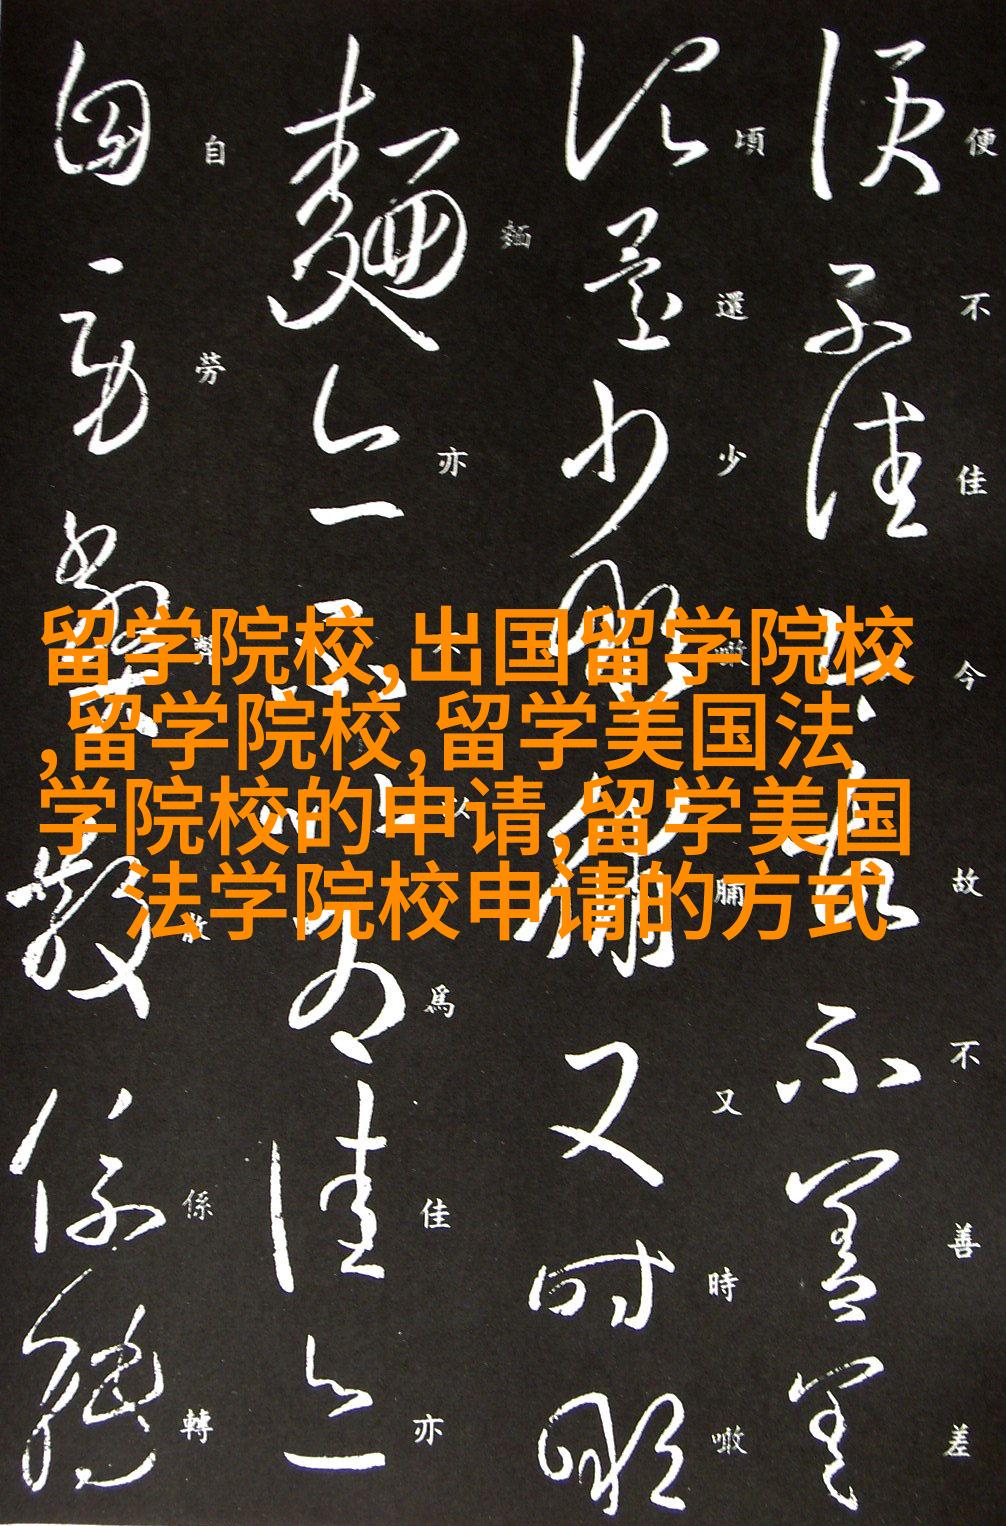 便不佳今故不善差
頃還少噉脯又時噉
麪亦不以爲佳亦
自勞弊散係轉
留学院校,出国留学院校
,留学院校,留学美国法
学院校的申请,留学美国
法学院校申请的方式